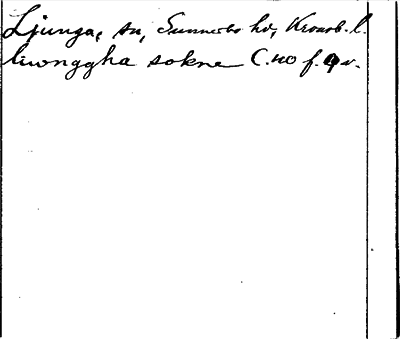 Ljunga, sn, Sunnerbo hd, Kronob. l.
liwonggha sokne C. 40 f. 9 v.